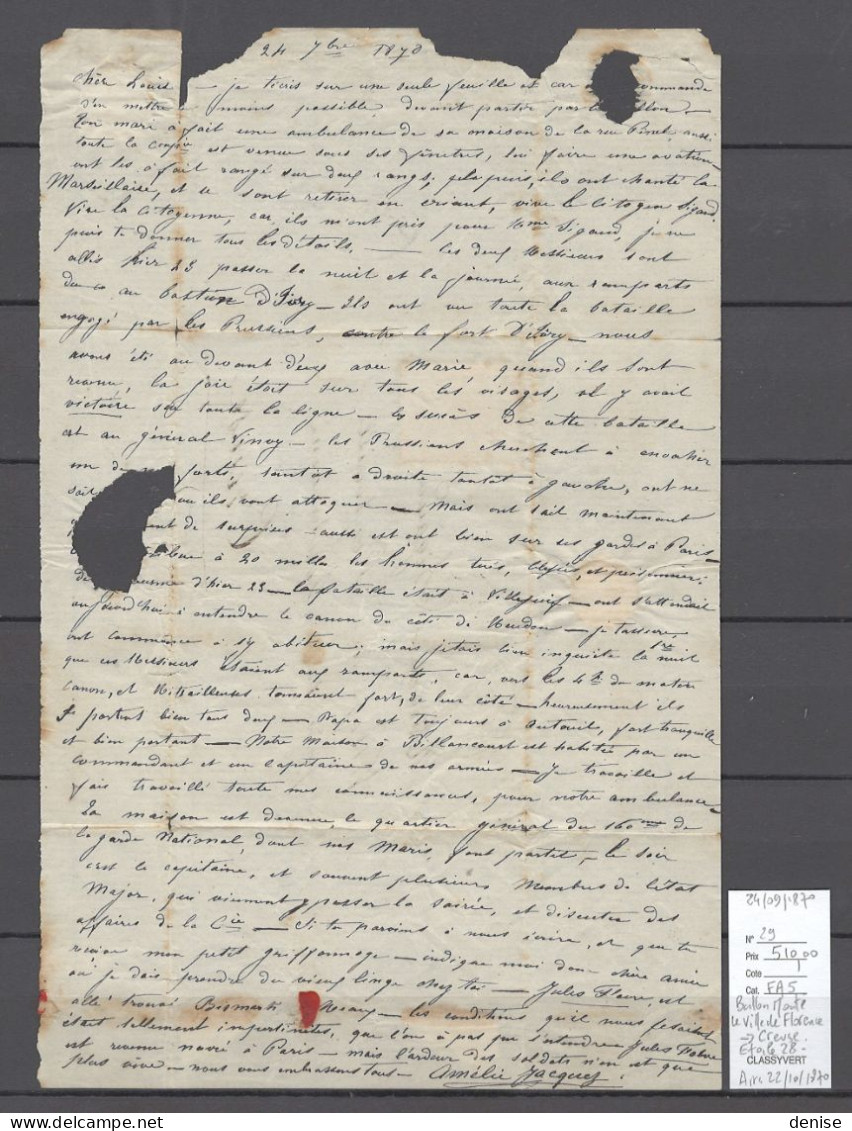 24 7bre 1870
chère Louise — je t'écris sur une seule feuille et car commande
d'en mettre le moins possible, devant partir par ballon —
Ton mari a fait une ambulance de sa maison de la rue aussi
toute la Cagnie est venue sous ses fenêtres, lui faire une ovation
ont les a fait rangé sur deux rangs, puis, ils ont chanté la
Marseillaise, et se sont retirer en criant, vive le Citoyen Sigaud,
Vive la Citoyenne, car ils m'ont pris pour Mme Sigaud, je ne
puis te donner tous les détails, — les deux Messieurs sont
allés hier 23 passer la nuit et la journée, aux remparts
au bastion D'Ivry — Ils ont vu toute la bataille
engagé par les Prussiens, contre le fort D'Ivry — nous
avons été au devant d'eux avec Marie quand ils sont
revenu, la joie était sur tous les visages, il y avait
victoire sur toute la ligne — le succès de cette bataille
est au général Vinoy — les Prussiens cherchent à
un de forts, tantôt a droite tantôt à gauche, ont ne
sait ou ils vont attaquer — Mais ont sait maintenant
de surprises — aussi est ont bien sur ses gardes à Paris —
à 20 mille les hommes tués, blessés, et prisonniers
d'hier 23 — la bataille était à Villejuif — ont s'attendait
aujourd'hui à entendre le canon du côté de Meudon — je t'assure,
ont commence à s'y abituer; mais j'étais bien inquiète la 1re nuit
que ces Messieurs étaient aux remparts, car, vers les 4h du matin
Canon, et Mitrailleuses tonnaient fort, de leur côté — heureusement ils
se portent bien tous deux — Papa est toujours à Auteuil, fort tranquille
et bien portant — Notre Maison à Billancourt est habitée par un
commandant et un capitaine de nos armées — Je travaille et
fais travaillé toute mes connaissances, pour notre ambulance —
La maison est devenue, le quartier général du 160me de
la garde National, dont nos Maris, font partie, — le soir
c'est le capitaine, et souvent plusieurs Membres de l'état
Major, qui viennent passer la soirée, et discuter des
affaires de la Cie — Si tu parviens à nous écrire, et que tu
reçoive mon petit griffonnage — indique moi donc chère amie
où je dois prendre du vieux linge chez toi — Jules Favre, est
allé trouvé Bismark — les conditions qu'il nous faisait
était tellement impertinentes, que l'on a pas pu s'entendre Jules Favre
est revenu navré à Paris — mais l'ardeur des soldats n'en est que
plus vive — nous vous embrassons tous — Amélie Jacques.
24/09/1870
N° 29
Prix 510,00
Cote
Cat. FA5
Ballon Monté
Le Ville de Florence
→ Creuse.
Etoile 28 -
CLASSYVERT
Arr. 22/10/1870
denise